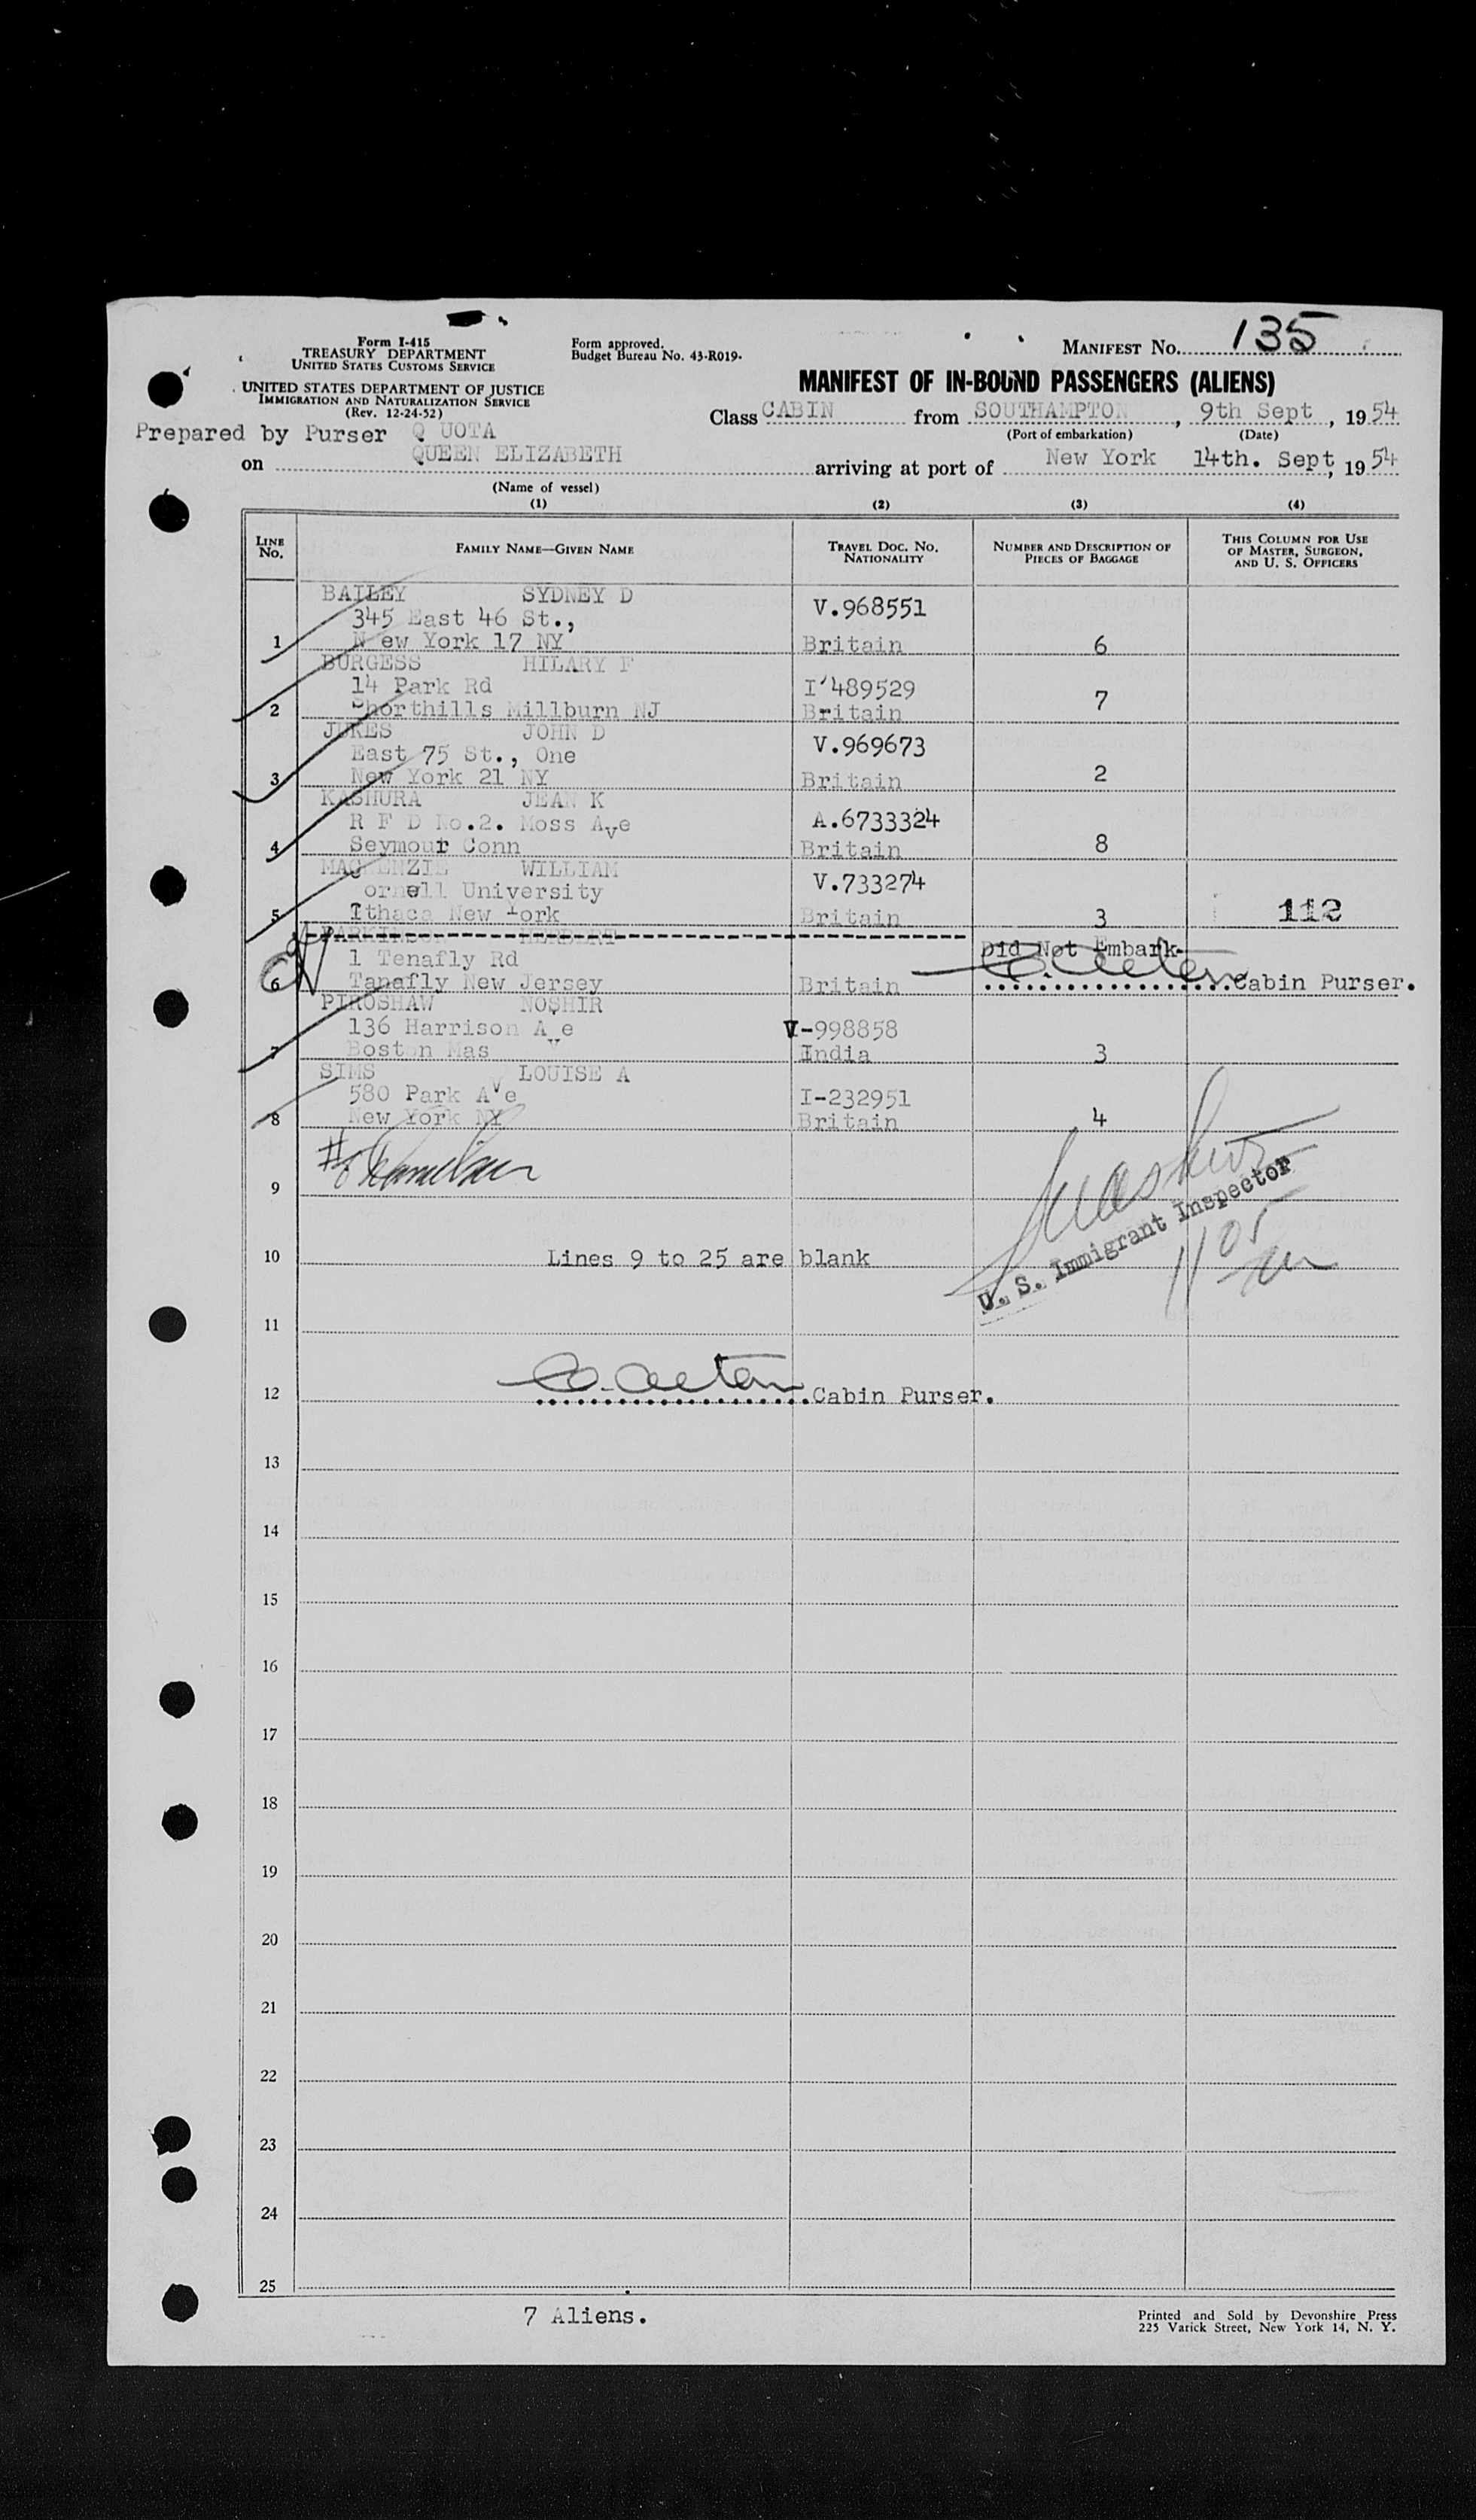 Form I-415
TREASURY DEPARTMENT
UNITED STATES CUSTOMS SERVICE
UNITED STATES DEPARTMENT OF JUSTICE
IMMIGRATION AND NATURALIZATION SERVICE
(Rev. 12-24-52)
Form approved.
Budget Bureau No. 43-R019.
MANIFEST No. 135
MANIFEST OF IN-BOUND PASSENGERS (ALIENS)
Class CABIN from SOUTHAMPTON, 9th Sept, 1954
(Port of embarkation) (Date)
Prepared by Purser Q UOTA
on QUEEN ELIZABETH arriving at port of New York 14th. Sept, 1954
(Name of vessel)
(1) (2) (3) (4)
LINE No. FAMILY NAME—GIVEN NAME TRAVEL DOC. NO. NATIONALITY NUMBER AND DESCRIPTION OF PIECES OF BAGGAGE THIS COLUMN FOR USE OF MASTER, SURGEON, AND U. S. OFFICERS
BAILEY SYDNEY D
345 East 46 St., V.968551
1 N ew York 17 NY Britain 6
BURGESS HILARY F
14 Park Rd I'489529
2 Shorthills Millburn NJ Britain 7
JUKES JOHN D
East 75 St., One V.969673
3 New York 21 NY Britain 2
KASHURA JEAN K
R F D No.2. Moss Ave A.6733324
4 Seymour Conn Britain 8
MACKENZIE WILLIAM
ornell University V.733274
5 Ithaca New York Britain 3 112
PARKINSON HERBERT
1 Tenafly Rd Did Not Embark
6 Tanafly New Jersey Britain Cabin Purser.
PIROSHAW NOSHIR
136 Harrison Ave V-998858
7 Boston Mas India 3
SIMS LOUISE A
580 Park Ave I-232951
8 New York NY Britain 4
9
U. S. Immigrant Inspector
1105
10 Lines 9 to 25 are blank
11
12 Cabin Purser.
13
14
15
16
17
18
19
20
21
22
23
24
25
7 Aliens.
Printed and Sold by Devonshire Press
225 Varick Street, New York 14, N. Y.